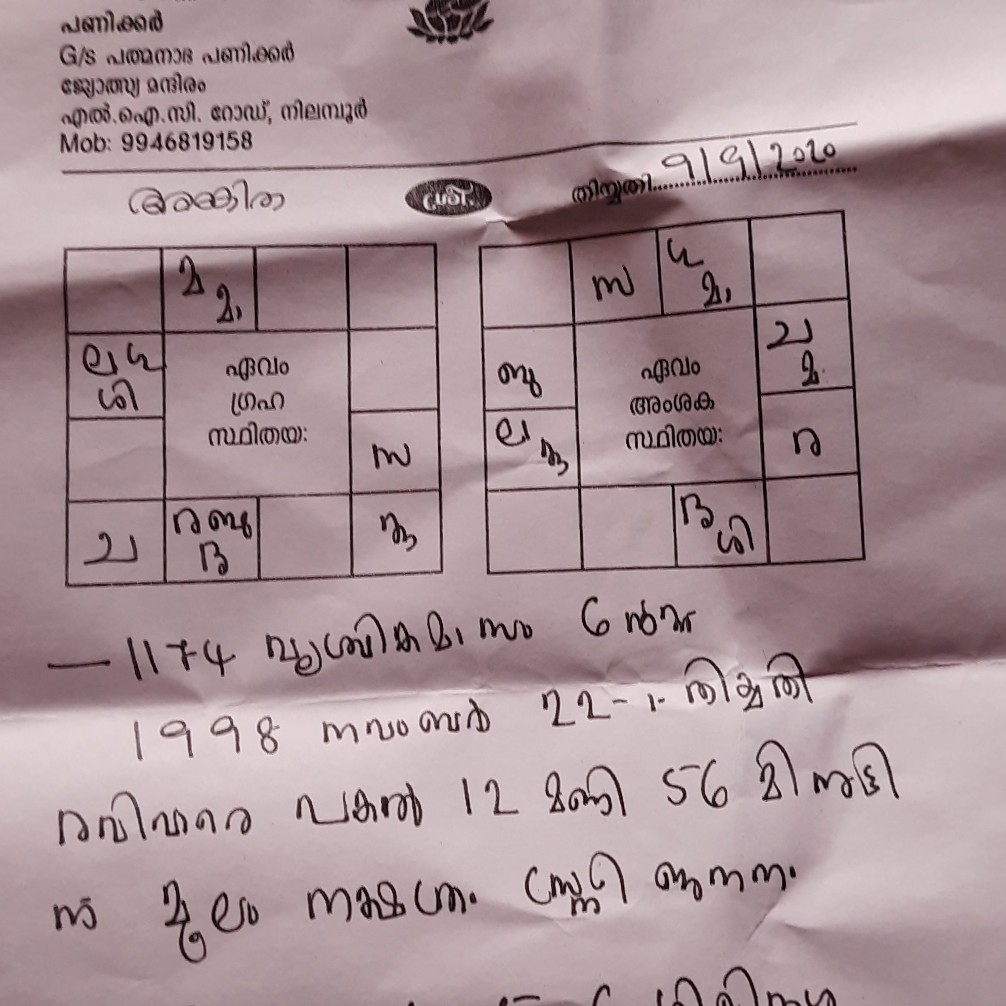 പണിക്കർ
G/s പത്മനാഭ പണിക്കർ
ജ്യോത്സ്യ മന്ദിരം
എൽ.ഐ.സി. റോഡ്, നിലമ്പൂർ
Mob: 9946819158
തിയ്യതി 9/9/2020
ശ്രീ
മ മാ
ല ശി
ഏവം
ഗ്രഹ
സ്ഥിതയഃ
സ
ച
ര ബു
സ
മാ
ബു
ഏവം
അംശക
സ്ഥിതയഃ
ച
മ
ല
ര
ശി
1174 വൃശ്ചികമാസം 6
1998 നവംബർ 22-ാം തിയ്യതി
രവിവാരെ പകൽ 12 മണി 56 മിനുട്ടി
ന് മൂലം നക്ഷത്രം സ്ത്രീ ജനനം